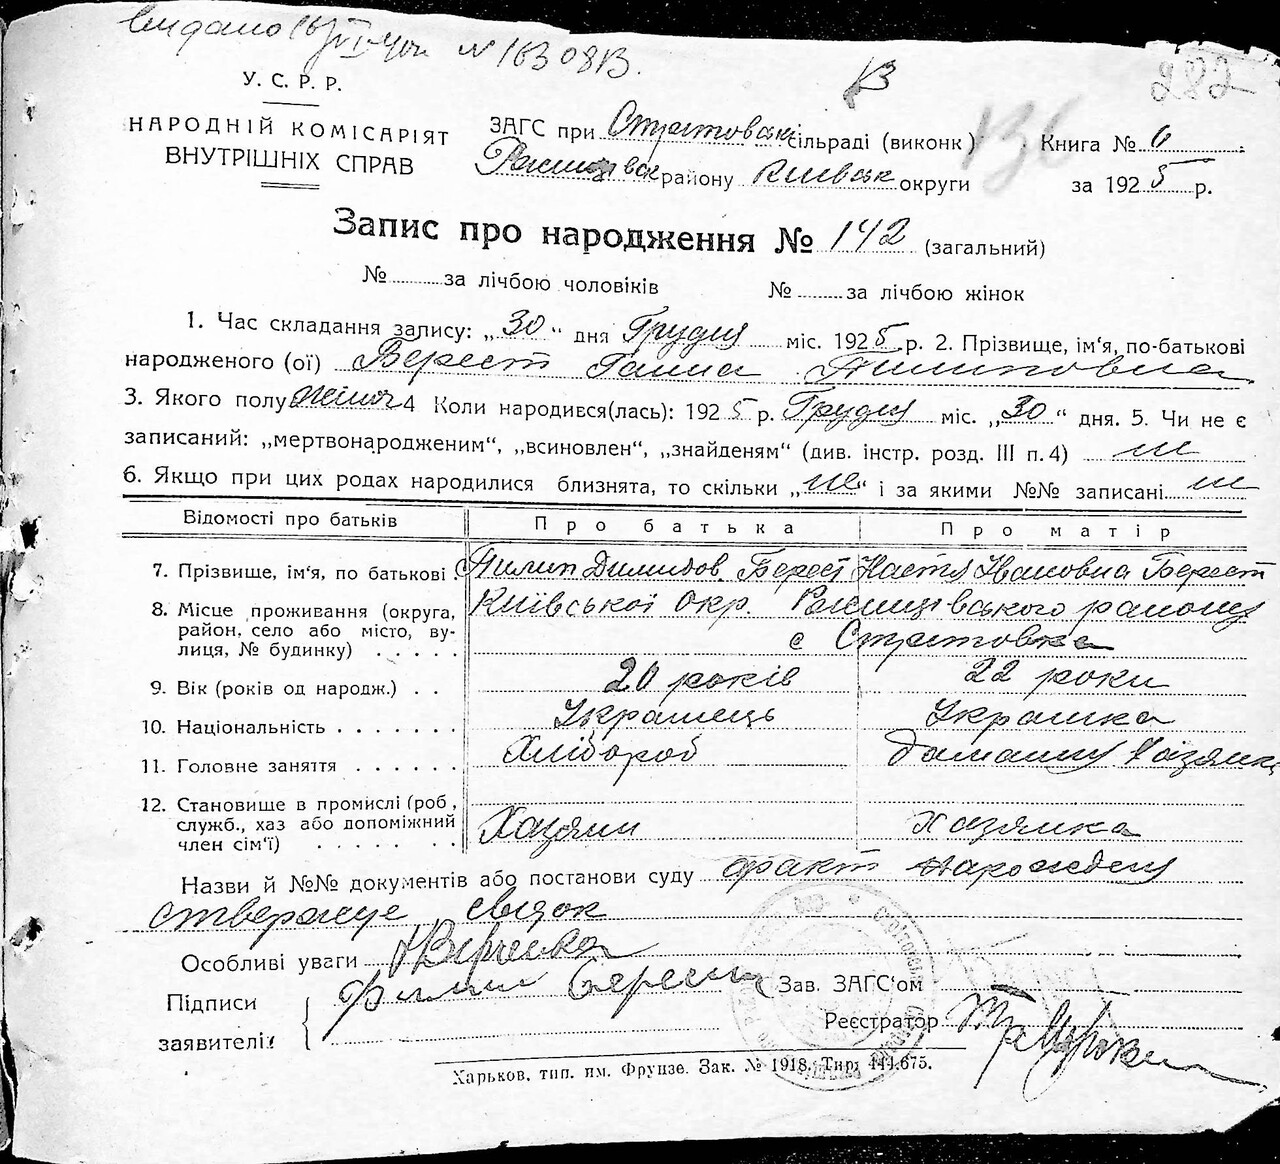 видано N 163083
282
У. С. Р. Р.
НАРОДНІЙ КОМІСАРІЯТ
ВНУТРІШНІХ СПРАВ
ЗАГС при сільраді (виконк)
136
Книга № 6
району Київськ округи
за 1925 р.
Запис про народження № 142 (загальний)
№ за лічбою чоловіків № за лічбою жінок
1. Час складання запису: „30" дня Грудня міс. 1925 р. 2. Прізвище, ім'я, по-батькові
народженого (ої) Берест Ганна Пилиповна
3. Якого полу жіноч 4 Коли народився(лась): 1925 р. Грудня міс. „30" дня. 5. Чи не є
записаний: „мертвонародженим", „всиновлен", „знайденям" (див. інстр. розд. III п. 4) ні
6. Якщо при цих родах народилися близнята, то скільки „ні" і за якими №№ записані ні
Відомості про батьків Про батька Про матір
7. Прізвище, ім'я, по батькові Пилип Демидов. Берест Настя Івановна Берест
8. Місце проживання (округа, Київської Окр. району
район, село або місто, ву- с
лиця, № будинку)
9. Вік (років од народж.) 20 років 22 роки
10. Національність Українець Українка
11. Головне заняття Хлібороб Домашня Хазяйка
12. Становище в промислі (роб,
служб., хаз або допоміжний Хазяин Хазяйка
член сім'ї)
Назви й №№ документів або постанови суду факт нарождення
стверджує свідок
Особливі уваги
Підписи Филип Берест Зав. ЗАГС'ом
заявителі: Реєстратор
Харьков, тип. им. Фрунзе. Зак. № 1918. Тир. 444.675.